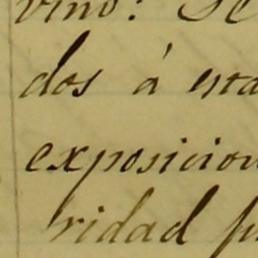 vino:
dos á esta
exposicion
ridad